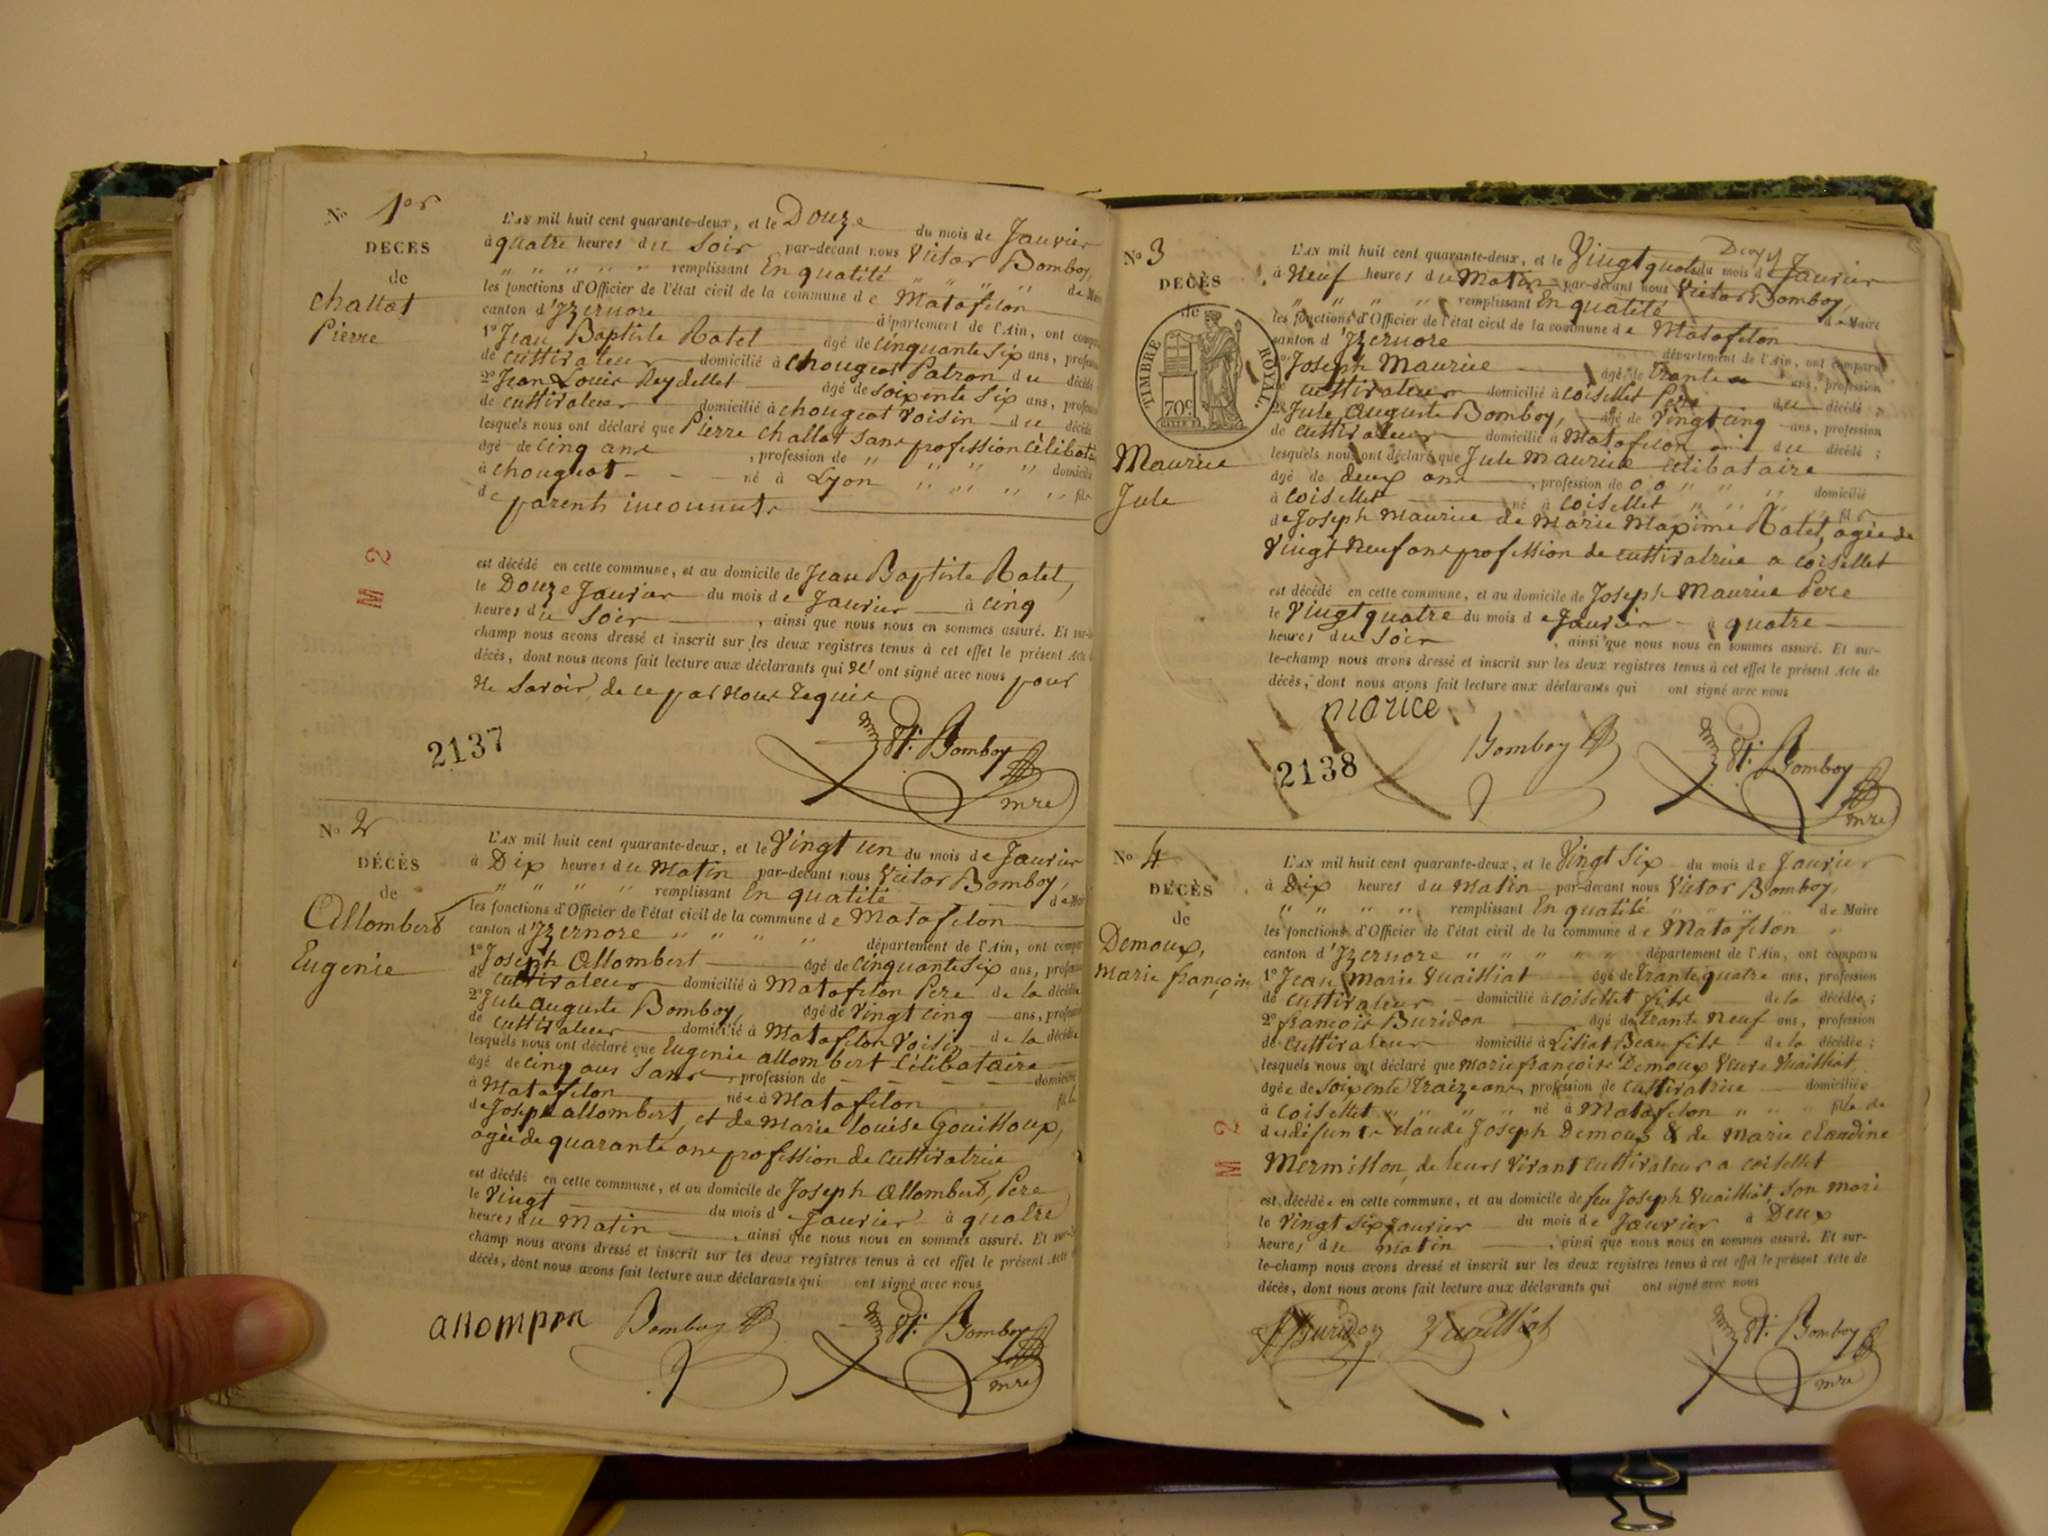 N° 1er
DÉCÈS
de
Challat
Pierre
L'AN mil huit cent quarante-deux, et le Douze du mois de Janvier
à quatre heures du Soir par-devant nous Victor Bomboy,
" " " " " remplissant En qualité " " " " de Maire
les fonctions d'Officier de l'état civil de la commune de Matafelon
canton d'Izernore département de l'Ain, ont comparu
1° Jean Baptiste Ratel âgé de cinquante six ans, profession
de cultivateur domicilié à chougeat Patron du décédé
2° Jean Louis Reydellet âgé de soixente six ans, profession
de cultivateur domicilié à chougeat Voisin du décédé
lesquels nous ont déclaré que Pierre Challat sans profession célibataire
âgé de cinq ans , profession de " " " " domicilié
à chougeat né à Lyon " " " " fils
de parents inconnuts
est décédé en cette commune, et au domicile de Jean Baptiste Ratel,
le Douze Janvier du mois de Janvier à cinq
heures du Soir , ainsi que nous nous en sommes assuré. Et sur-le-
champ nous avons dressé et inscrit sur les deux registres tenus à cet effet le présent Acte de
décès, dont nous avons fait lecture aux déclarants qui n' ont signé avec nous pour
ne Savoir, de ce par nous requis
M 2
2137
Vt. Bomboy
mre
N° 2
DÉCÈS
de
Allombert
Eugenie
L'AN mil huit cent quarante-deux, et le Vingt un du mois de Janvier
à Dix heures du Matin par-devant nous Victor Bomboy,
" " " " remplissant En qualité de Maire
les fonctions d'Officier de l'état civil de la commune de Matafelon
canton d'Izernore " " " " département de l'Ain, ont comparu
1° Joseph Allombert âgé de cinquante six ans, profession
de cultivateur domicilié à Matafelon Pere de la décédée
2° Jule Auguste Bomboy, âgé de vingt cinq ans, profession
de cultivateur domicilié à Matafelon Voisin de la décédée
lesquels nous ont déclaré que Eugenie allombert Célibataire
âgé de cinq ans Sans profession de domiciliée
à Matafelon née à Matafelon fille
de Joseph allombert, et de Marie Louise Gouilloux,
agée de quarante ans profession de cultivatrice
est décédé en cette commune, et au domicile de Joseph Allombert, Pere
le Vingt du mois de Janvier à quatre
heures du Matin , ainsi que nous nous en sommes assuré. Et sur-le-
champ nous avons dressé et inscrit sur les deux registres tenus à cet effet le présent Acte de
décès, dont nous avons fait lecture aux déclarants qui ont signé avec nous
Bomboy Vt. Bomboy
mre
N° 3
DÉCÈS
de
TIMBRE ROYAL
70c
Maurice
Jule
L'AN mil huit cent quarante-deux, et le Vingt quatre du mois de Janvier
à Neuf heures du Matin par-devant nous Victor Bomboy,
" " " " remplissant En qualité de Maire
les fonctions d'Officier de l'état civil de la commune de Matafelon
canton d'Izernore département de l'Ain, ont comparu
1° Joseph Maurice âgé de trante ans, profession
de cultivateur domicilié à coisellet Pere du décédé
2° Jule Auguste Bomboy, âgé de Vingt cinq ans, profession
de cultivateur domicilié à Matafelon ami du décédé ;
lesquels nous ont déclaré que Jule Maurice célibataire
âgé de deux ans , profession de " " " domicilié
à coisellet né à coisellet " " " " fils
de Joseph Maurice de Marie Maxime Ratel, agée de
Vingt neuf ans profession de cultivatrice a coisellet
est décédé en cette commune, et au domicile de Joseph Maurice Pere
le Vingt quatre du mois de Janvier à quatre
heures du Soir , ainsi que nous nous en sommes assuré. Et sur-
le-champ nous avons dressé et inscrit sur les deux registres tenus à cet effet le présent Acte de
décès, dont nous avons fait lecture aux déclarants qui ont signé avec nous
marice
2138
Bomboy Vt. Bomboy
mre
N° 4
DÉCÈS
de
Demoux,
Marie françoise
L'AN mil huit cent quarante-deux, et le Vingt Six du mois de Janvier
à Dix heures du Matin par-devant nous Victor Bomboy,
" " " " remplissant En qualité " " " de Maire
les fonctions d'Officier de l'état civil de la commune de Matafelon "
canton d'Izernore " " " " " département de l'Ain, ont comparu
1° Jean Marie Vuailliat âgé de trante quatre ans, profession
de cultivateur domicilié à coisellet fils de la décédée ;
2° françois Buridon âgé de trante Neuf ans, profession
de cultivateur domicilié à Liliat Beau fils de la décédée ;
lesquels nous ont déclaré que Marie françoise Demoux Veuve Vuailliat
âgée de soixente traize ans profession de cultivatrice domiciliée
à coisellet " " " " né à Matafelon " " " fille de
des défunts claude Joseph Demoux & de Marie claudine
Mermillon, de leurs vivant cultivateur a coisellet
est décédée en cette commune, et au domicile de feu Joseph Vuailliat, Son Mari
le Vingt six Janvier du mois de Janvier à Deux
heures du matin , ainsi que nous nous en sommes assuré. Et sur-
le-champ nous avons dressé et inscrit sur les deux registres tenus à cet effet le présent Acte de
décès, dont nous avons fait lecture aux déclarants qui ont signé avec nous
M 2
Buridon Vuailliat Vt. Bomboy
mre